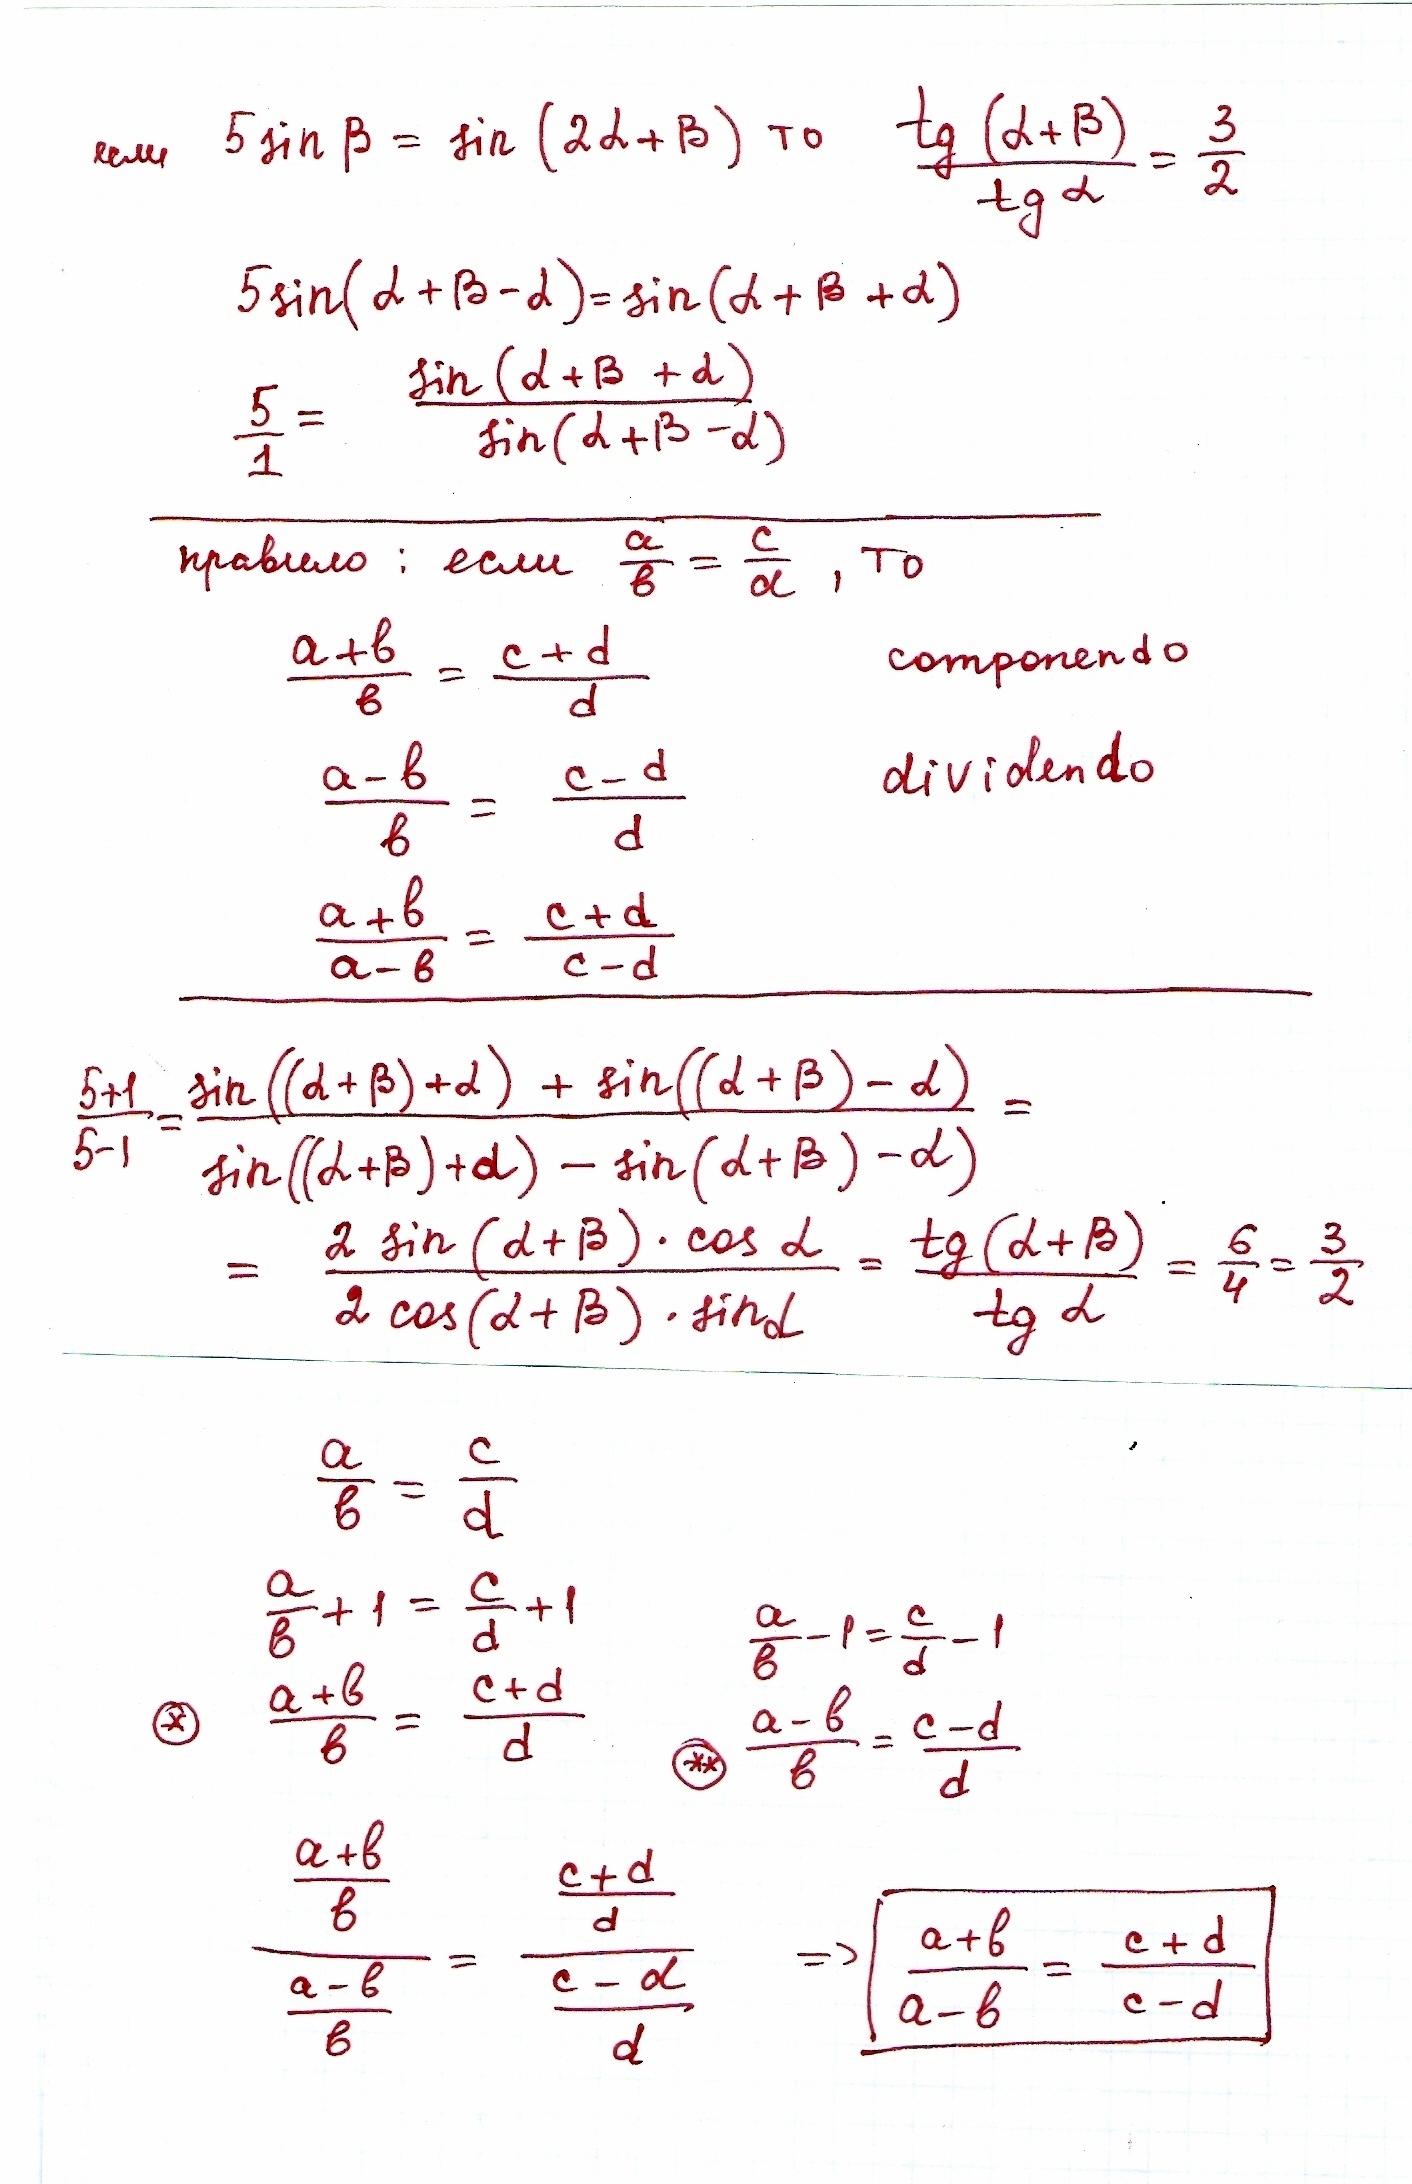 если 5 sin β = sin (2α + β) то tg (α+β) / tg α = 3/2
5 sin(α + β - α) = sin(α + β + α)
5/1 = sin (α + β + α) / sin(α + β - α)
правило : если a/в = c/d , то
(a + в)/в = (c + d)/d componendo
(a - в)/в = (c - d)/d dividendo
(a + в)/(a - в) = (c + d)/(c - d)
(5+1)/(5-1) = (sin((α+β)+α) + sin((α+β) - α)) / (sin((α+β)+α) - sin(α+β) - α)) =
= (2 sin (α+β) · cos α) / (2 cos(α+β) · sin α) = tg(α+β) / tg α = 6/4 = 3/2
a/в = c/d
a/в + 1 = c/d + 1
a/в - 1 = c/d - 1
* (a+в)/в = (c+d)/d
** (a-в)/в = (c-d)/d
((a+в)/в) / ((a-в)/в) = ((c+d)/d) / ((c-d)/d) => (a+в)/(a-в) = (c+d)/(c-d)